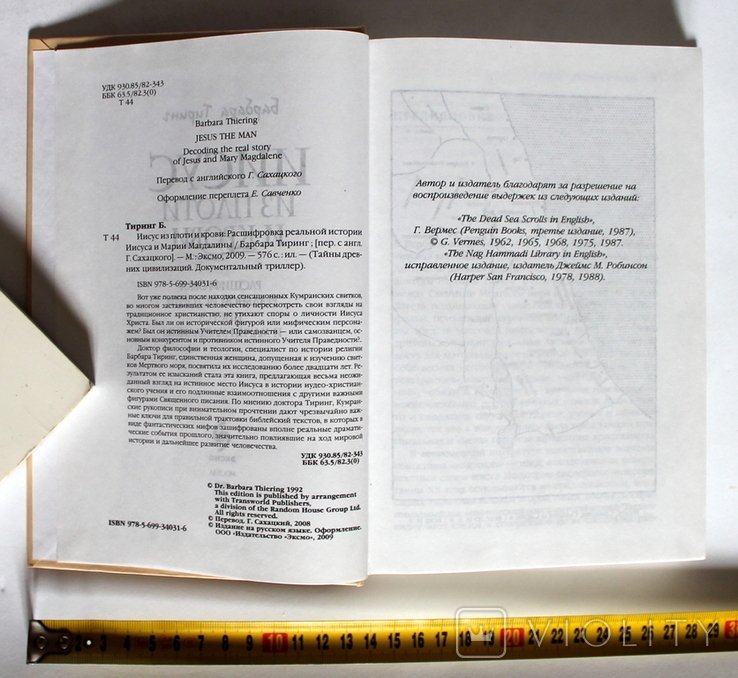 УДК 930.85/82-343
ББК 63.5/82.3(0)
Т 44
Barbara Thiering
JESUS THE MAN
Decoding the real story
of Jesus and Mary Magdalene
Перевод с английского Г. Сахацкого
Оформление переплета Е. Савченко
Тиринг Б.
Т 44 Иисус из плоти и крови: Расшифровка реальной истории
Иисуса и Марии Магдалины / Барбара Тиринг ; [пер. с англ.
Г. Сахацкого]. — М.: Эксмо, 2009. — 576 с.: ил. — (Тайны древ-
них цивилизаций. Документальный триллер).
ISBN 978-5-699-34031-6
Вот уже полвека после находки сенсационных Кумранских свитков,
во многом заставивших человечество пересмотреть свои взгляды на
традиционное христианство, не утихают споры о личности Иисуса
Христа. Был ли он исторической фигурой или мифическим персона-
жем? Был он истинным Учителем Праведности — или самозванцем, ос-
новным конкурентом и противником истинного Учителя Праведности?.
Доктор философии и теологии, специалист по истории религии
Барбара Тиринг, единственная женщина, допущенная к изучению свит-
ков Мертвого моря, посвятила их исследованию более двадцати лет. Ре-
зультатом ее изысканий стала эта книга, предлагающая весьма неожи-
данный взгляд на истинное место Иисуса в истории иудео-христиан-
ского учения и его подлинные взаимоотношения с другими важными
фигурами Священного писания. По мнению доктора Тиринг, Кумран-
ские рукописи при внимательном прочтении дают чрезвычайно важ-
ные ключи для правильной трактовки библейский текстов, в которых в
виде фантастических мифов зашифрованы вполне реальные драмати-
ческие события прошлого, значительно повлиявшие на ход мировой
истории и дальнейшее развитие человечества.
УДК 930.85/82-343
ББК 63.5/82.3(0)
© Dr. Barbara Thiering 1992
This edition is published by arrangement
with Transworld Publishers,
a division of the Random House Group Ltd.
All rights reserved.
© Перевод. Г. Сахацкий, 2008
© Издание на русском языке. Оформление.
ISBN 978-5-699-34031-6 ООО «Издательство «Эксмо», 2009
Автор и издатель благодарят за разрешение на
воспроизведение выдержек из следующих изданий:
«The Dead Sea Scrolls in English»,
Г. Вермес (Penguin Books, третье издание, 1987),
© G. Vermes, 1962, 1965, 1968, 1975, 1987.
«The Nag Hammadi Library in English»,
исправленное издание, издатель Джеймс М. Робинсон
(Harper San Francisco, 1978, 1988).
2 3 4 5 6 7 8 9 10 11 12 13 14 15 16 17 18 19 20 21 22 23 24 25 26 27 28 29 30
VIOLITY